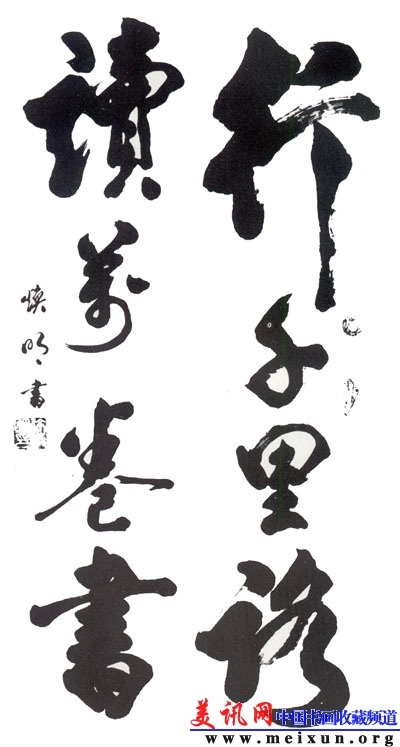 行千里路
讀萬卷書
焕明书
美讯网 中国书画收藏频道
www.meixun.org